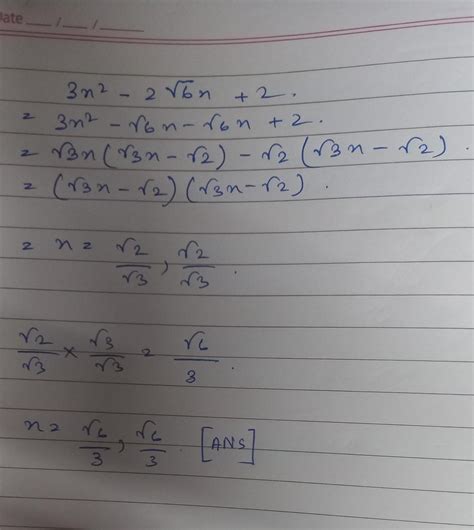 Date ___/___/______
3x² - 2√6x + 2.
= 3x² - √6x - √6x + 2.
= √3x(√3x - √2) - √2(√3x - √2).
= (√3x - √2)(√3x - √2).
= x = √2/√3, √2/√3.
√2/√3 × √3/√3 = √6/3.
x = √6/3, √6/3. [ANS]